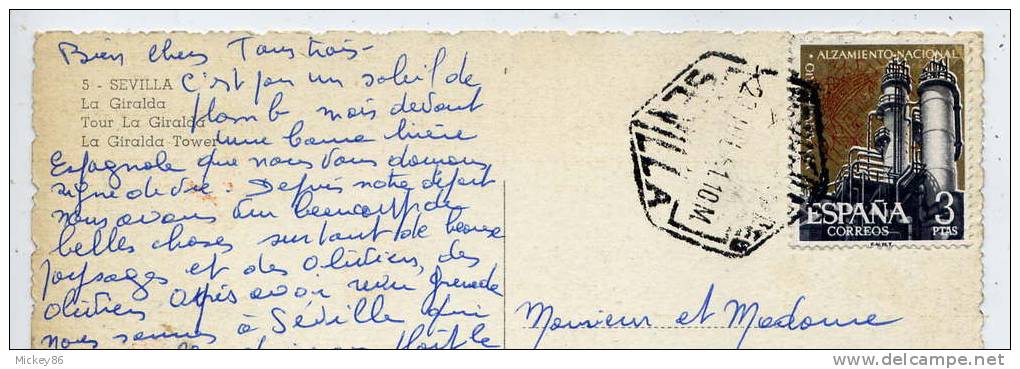 Bien chers Tous trois -
5 - SEVILLA
La Giralda
Tour La Giralda
La Giralda Tower
C'est par un soleil de
plomb mais devant
une bonne bière
Espagnole que nous vous donnons
signe de vie. Depuis notre départ
nous avons vu beaucoup de
belles choses surtout de beaux
paysages et des oliviers, des
oliviers après avoir vu Grenade
nous sommes à Séville qui
le
SEVILLA
ALZAMIENTO NACIONAL
ESPAÑA
CORREOS
3
PTAS
F.N.M.T.
Monsieur et Madame
Mickey86
www.delcampe.net